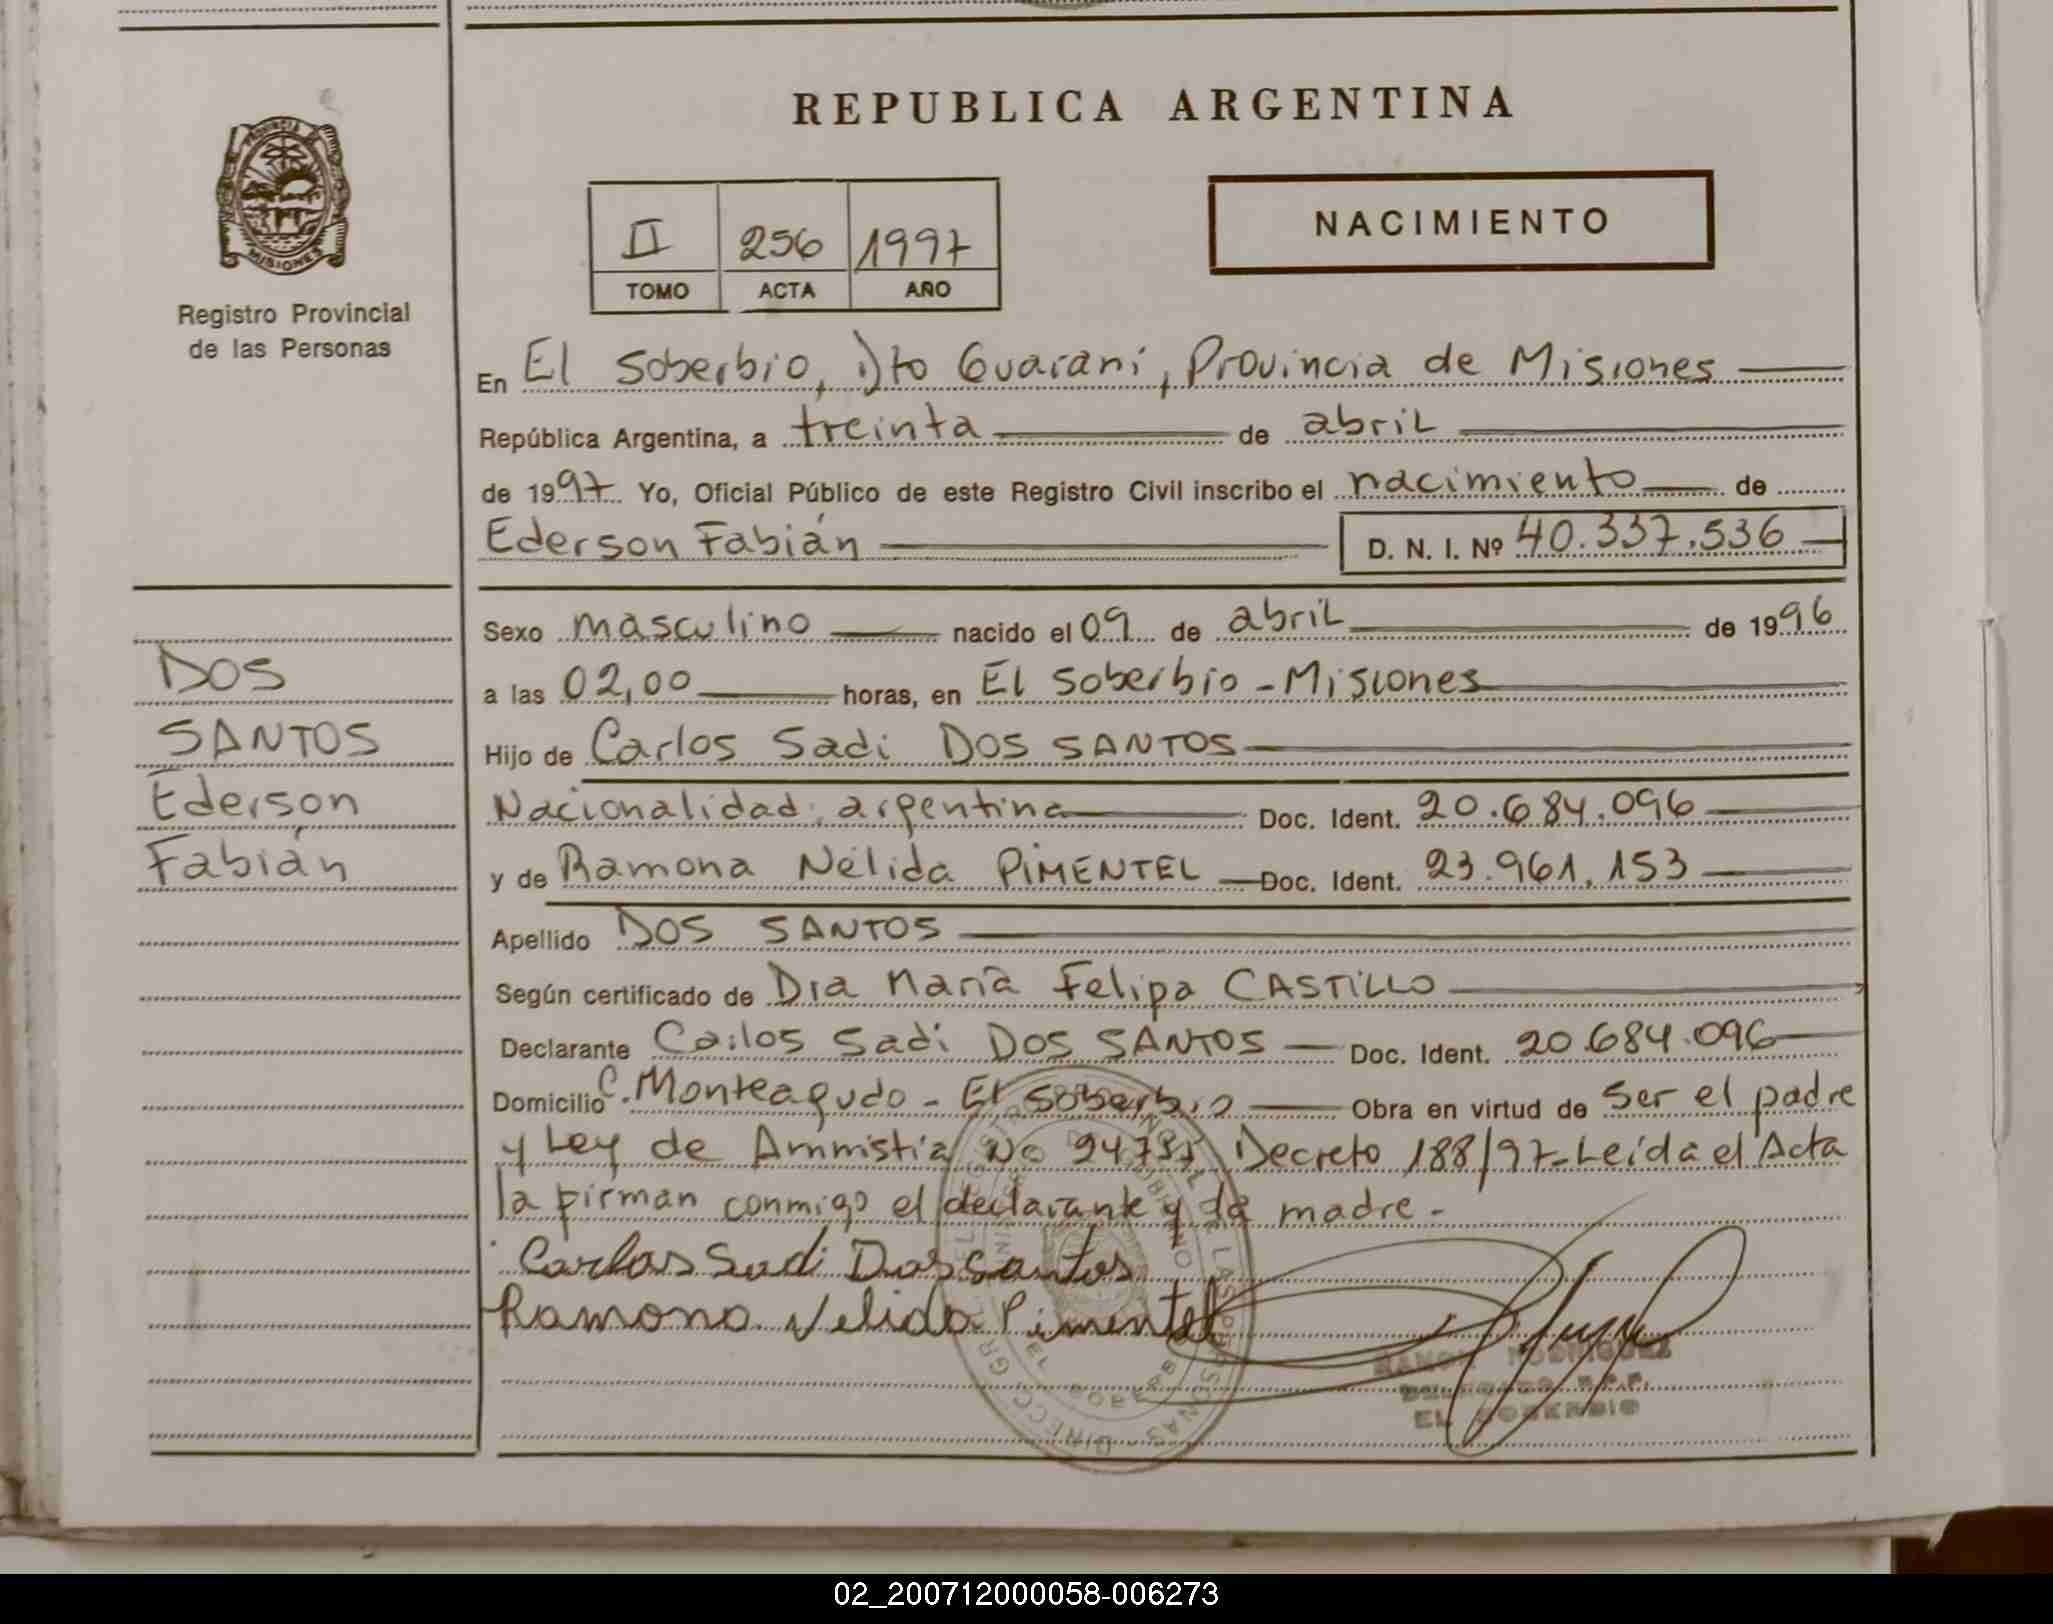 REPUBLICA ARGENTINA
PROVINCIA
MISIONES
Registro Provincial
de las Personas
NACIMIENTO
II 256 1997
TOMO ACTA AÑO
En El Soberbio, Dto Guaraní, Provincia de Misiones
República Argentina, a treinta de abril
de 1997 Yo, Oficial Público de este Registro Civil inscribo el nacimiento de
Ederson Fabián D. N. I. Nº 40.337.536
DOS
SANTOS
Ederson
Fabián
Sexo masculino nacido el 09 de abril de 1996
a las 02,00 horas, en El Soberbio - Misiones
Hijo de Carlos Sadi DOS SANTOS
Nacionalidad: argentina Doc. Ident. 20.684.096
y de Ramona Nélida PIMENTEL Doc. Ident. 23.961.153
Apellido DOS SANTOS
Según certificado de Dra María Felipa CASTILLO
Declarante Carlos Sadi DOS SANTOS Doc. Ident. 20.684.096
Domicilio C. Monteagudo - El Soberbio Obra en virtud de Ser el padre
y Ley de Ammistia No Decreto 188/97-Leída el Acta
la firman conmigo el declarante y la madre -
Carlos Sadi Dos Santos
Ramona Nelida Pimentel
RAMON RODRIGUEZ
DELEGADO R.P.P.
EL SOBERBIO
02_200712000058-006273